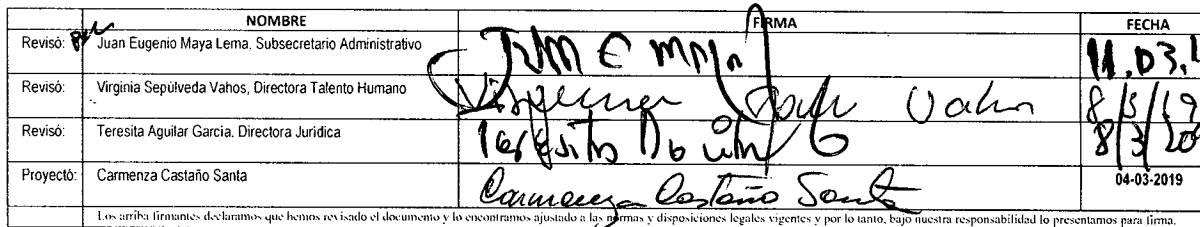 NOMBRE FIRMA FECHA
Revisó: Juan Eugenio Maya Lema, Subsecretario Administrativo 11.03.
Revisó: Virginia Sepúlveda Vahos, Directora Talento Humano Vahos 8/3/19
Revisó: Teresita Aguilar García. Directora Jurídica 8/3/20
Proyectó: Carmenza Castaño Santa Carmenza Castaño Santa 04-03-2019
Los arriba firmantes declaramos que hemos revisado el documento y lo encontramos ajustado a las normas y disposiciones legales vigentes y por lo tanto, bajo nuestra responsabilidad lo presentamos para firma.